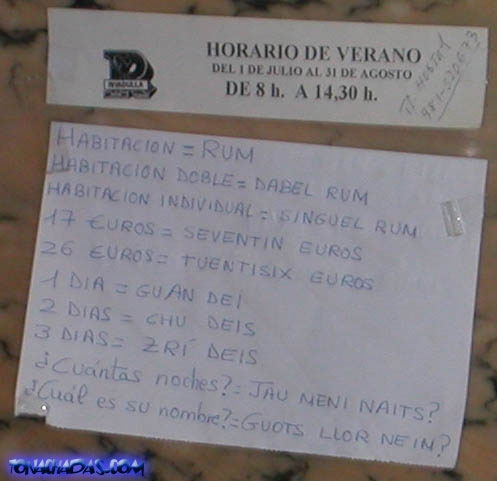 RIVADULLA
HORARIO DE VERANO
DEL 1 DE JULIO AL 31 DE AGOSTO
DE 8 h. A 14,30 h.
HABITACION = RUM
HABITACION DOBLE = DABEL RUM
HABITACION INDIVIDUAL = SINGUEL RUM
17 EUROS = SEVENTIN EUROS
26 EUROS = TUENTISIX EUROS
1 DIA = GUAN DEI
2 DIAS = CHU DEIS
3 DIAS = ZRÍ DEIS
¿Cuántas noches? = JAU MENI NAITS?
¿Cuál es su nombre? = GUOTS LLOR NEIM?
TONAGHADAS.COM